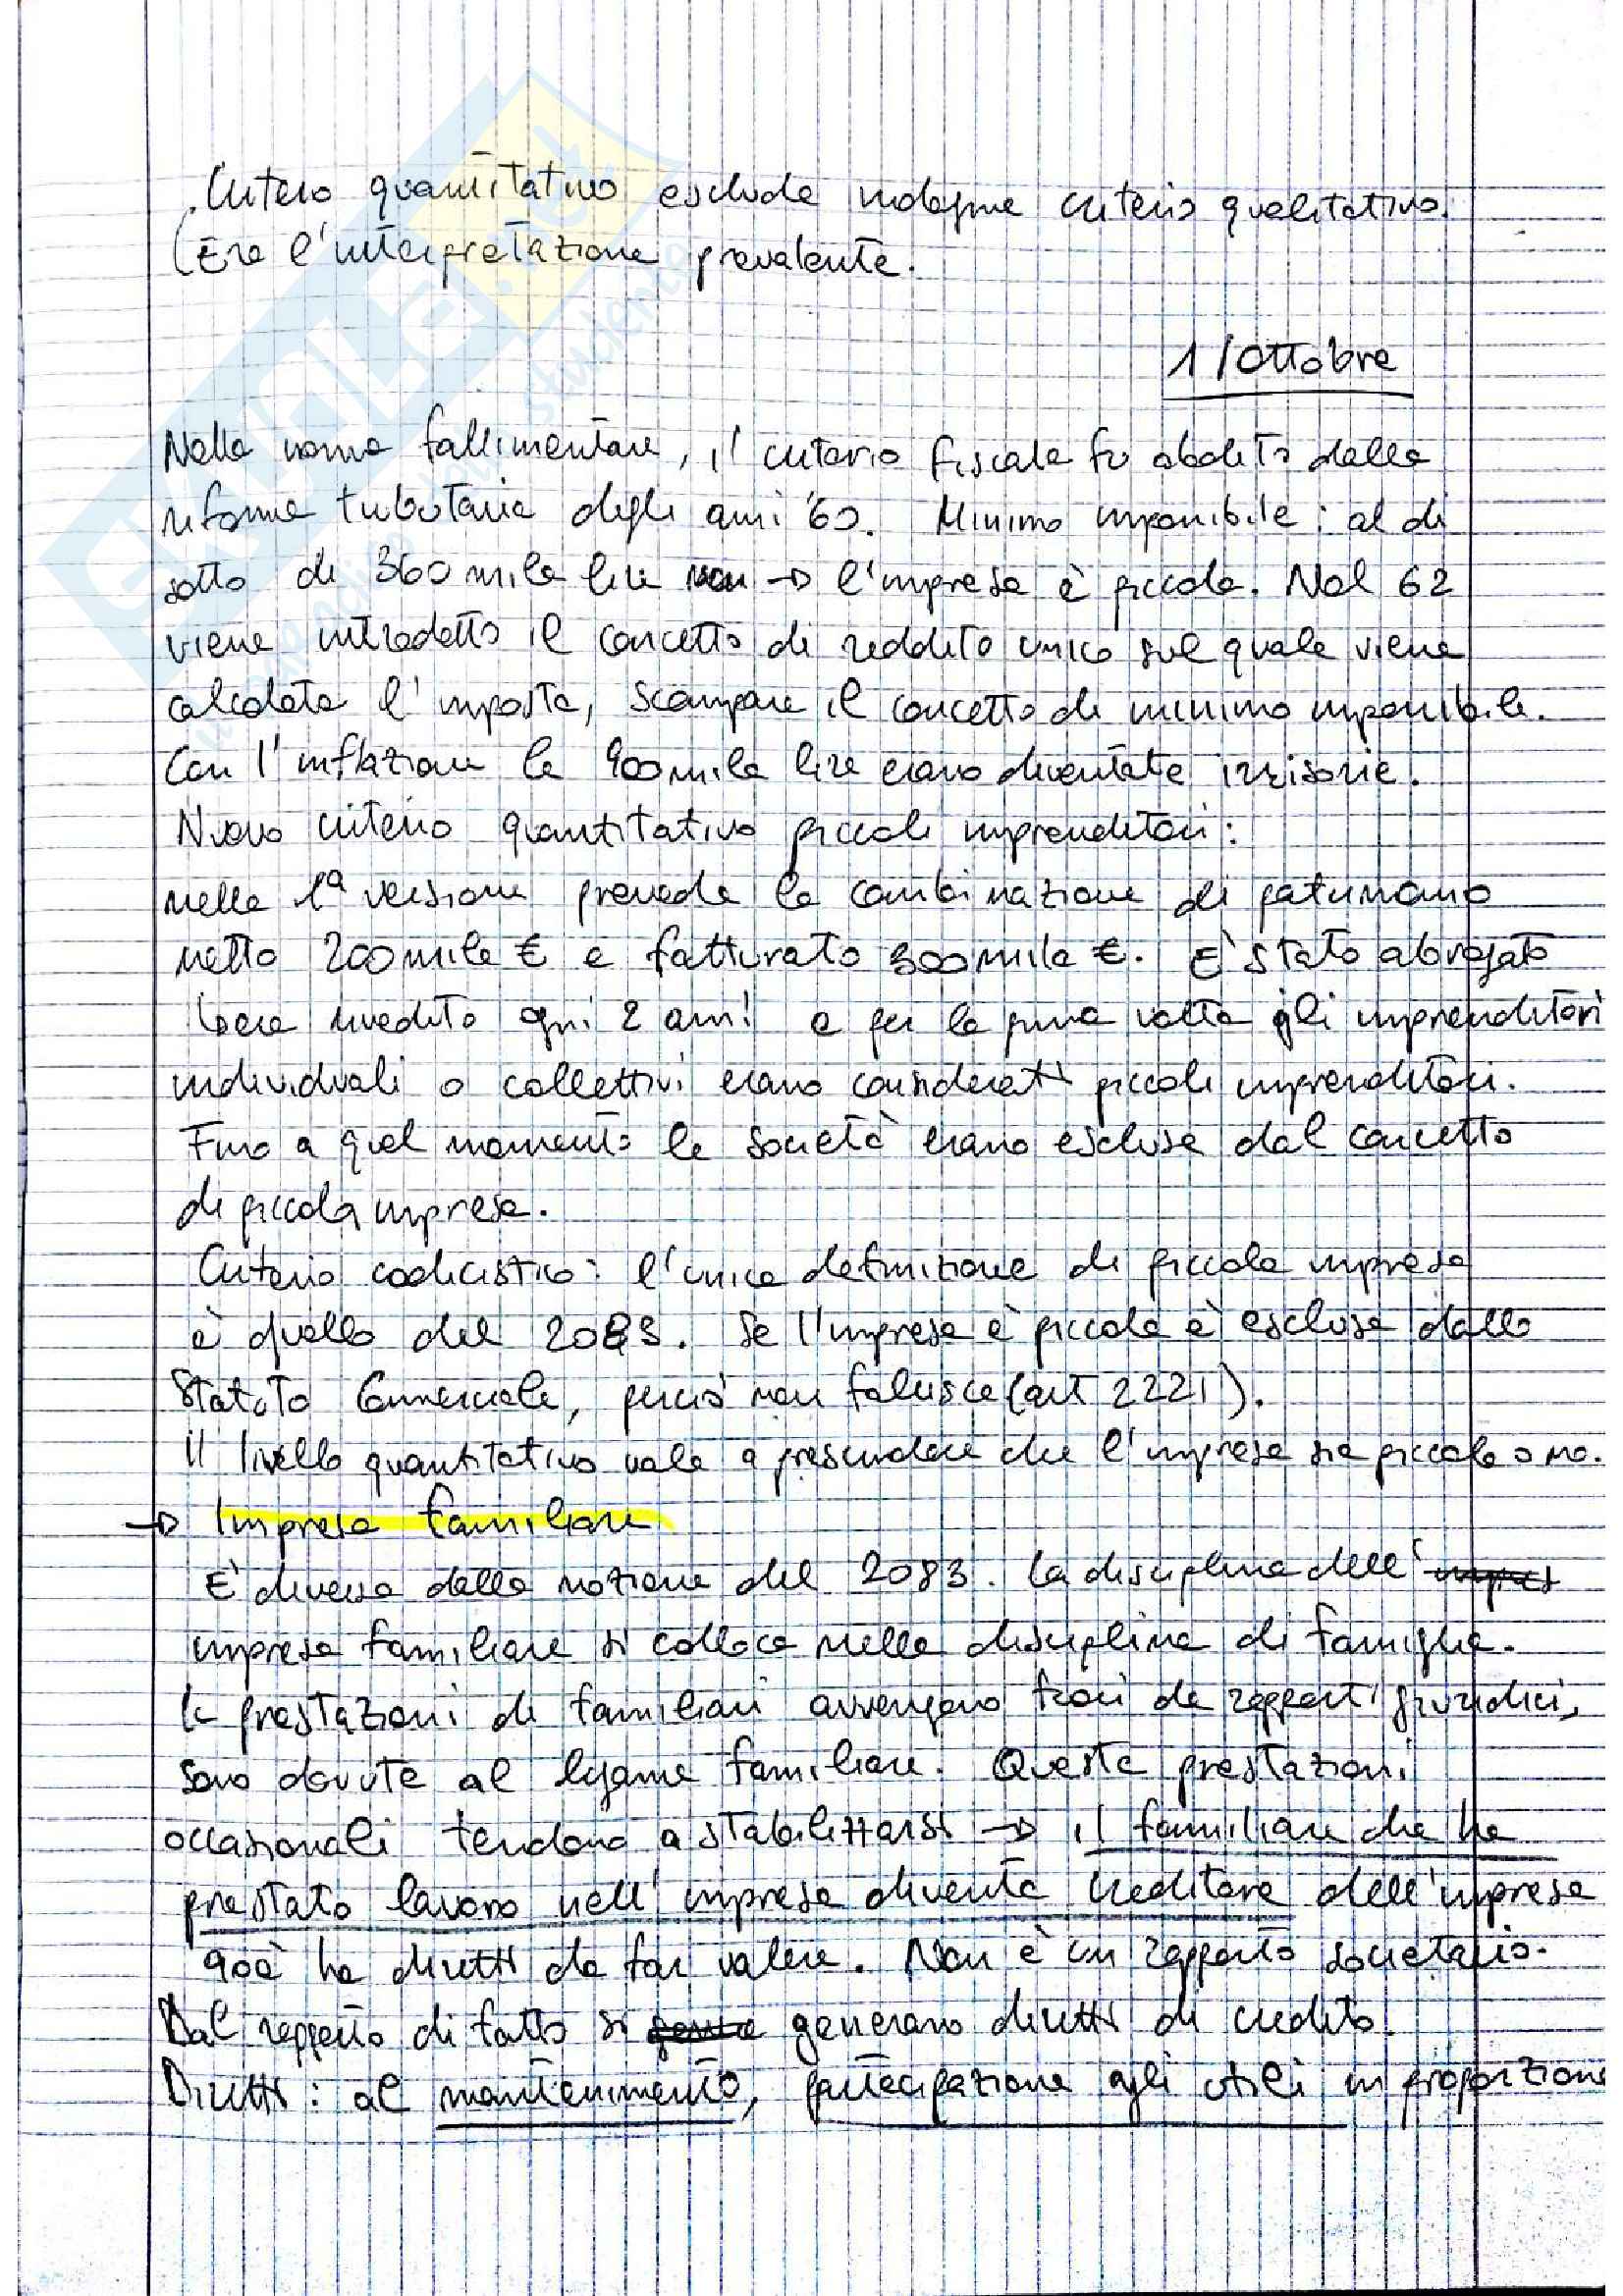 Criterio quantitativo esclude indagine criterio qualitativo.
(Era l'interpretazione prevalente.
1/Ottobre
Nella norma fallimentare, il criterio fiscale fu abolito dalla
riforma tributaria degli anni '60. Minimo imponibile: al di
sotto di 360 mila lire → l'impresa è piccola. Nel 62
viene introdotto il concetto di reddito unico sul quale viene
calcolata l'imposta, scompare il concetto di minimo imponibile.
Con l'inflazione le 900 mila lire erano diventate irrisorie.
Nuovo criterio quantitativo piccoli imprenditori:
nella 1ª versione prevede la combinazione di patrimonio
netto 200 mila € e fatturato 300 mila €. E' stato abrogato
rivedito ogni 2 anni e per la prima volta gli imprenditori
individuali o collettivi erano considerati piccoli imprenditori.
Fino a quel momento le società erano escluse dal concetto
di piccola impresa.
Criterio codicistico: l'unica definizione di piccola impresa
è quella del 2083. Se l'impresa è piccola è esclusa dallo
Statuto Commerciale, perciò non fallisce (art 2221).
Il livello quantitativo vale a prescindere che l'impresa sia piccola o no.
→ Impresa familiare
E' diversa dalla nozione del 2083. La disciplina dell'
impresa familiare si colloca nella disciplina di famiglia.
Le prestazioni di familiari avvengono fuori da rapporti giuridici,
sono dovute al legame familiare. Queste prestazioni
occasionali tendono a stabilizzarsi → il familiare che ha
prestato lavoro nell'impresa diventa creditore dell'impresa
cioè ha diritti da far valere. Non è un rapporto societario.
Dal rapporto di fatto si generano diritti di credito.
Diritti: al mantenimento, partecipazione agli utili in proporzione